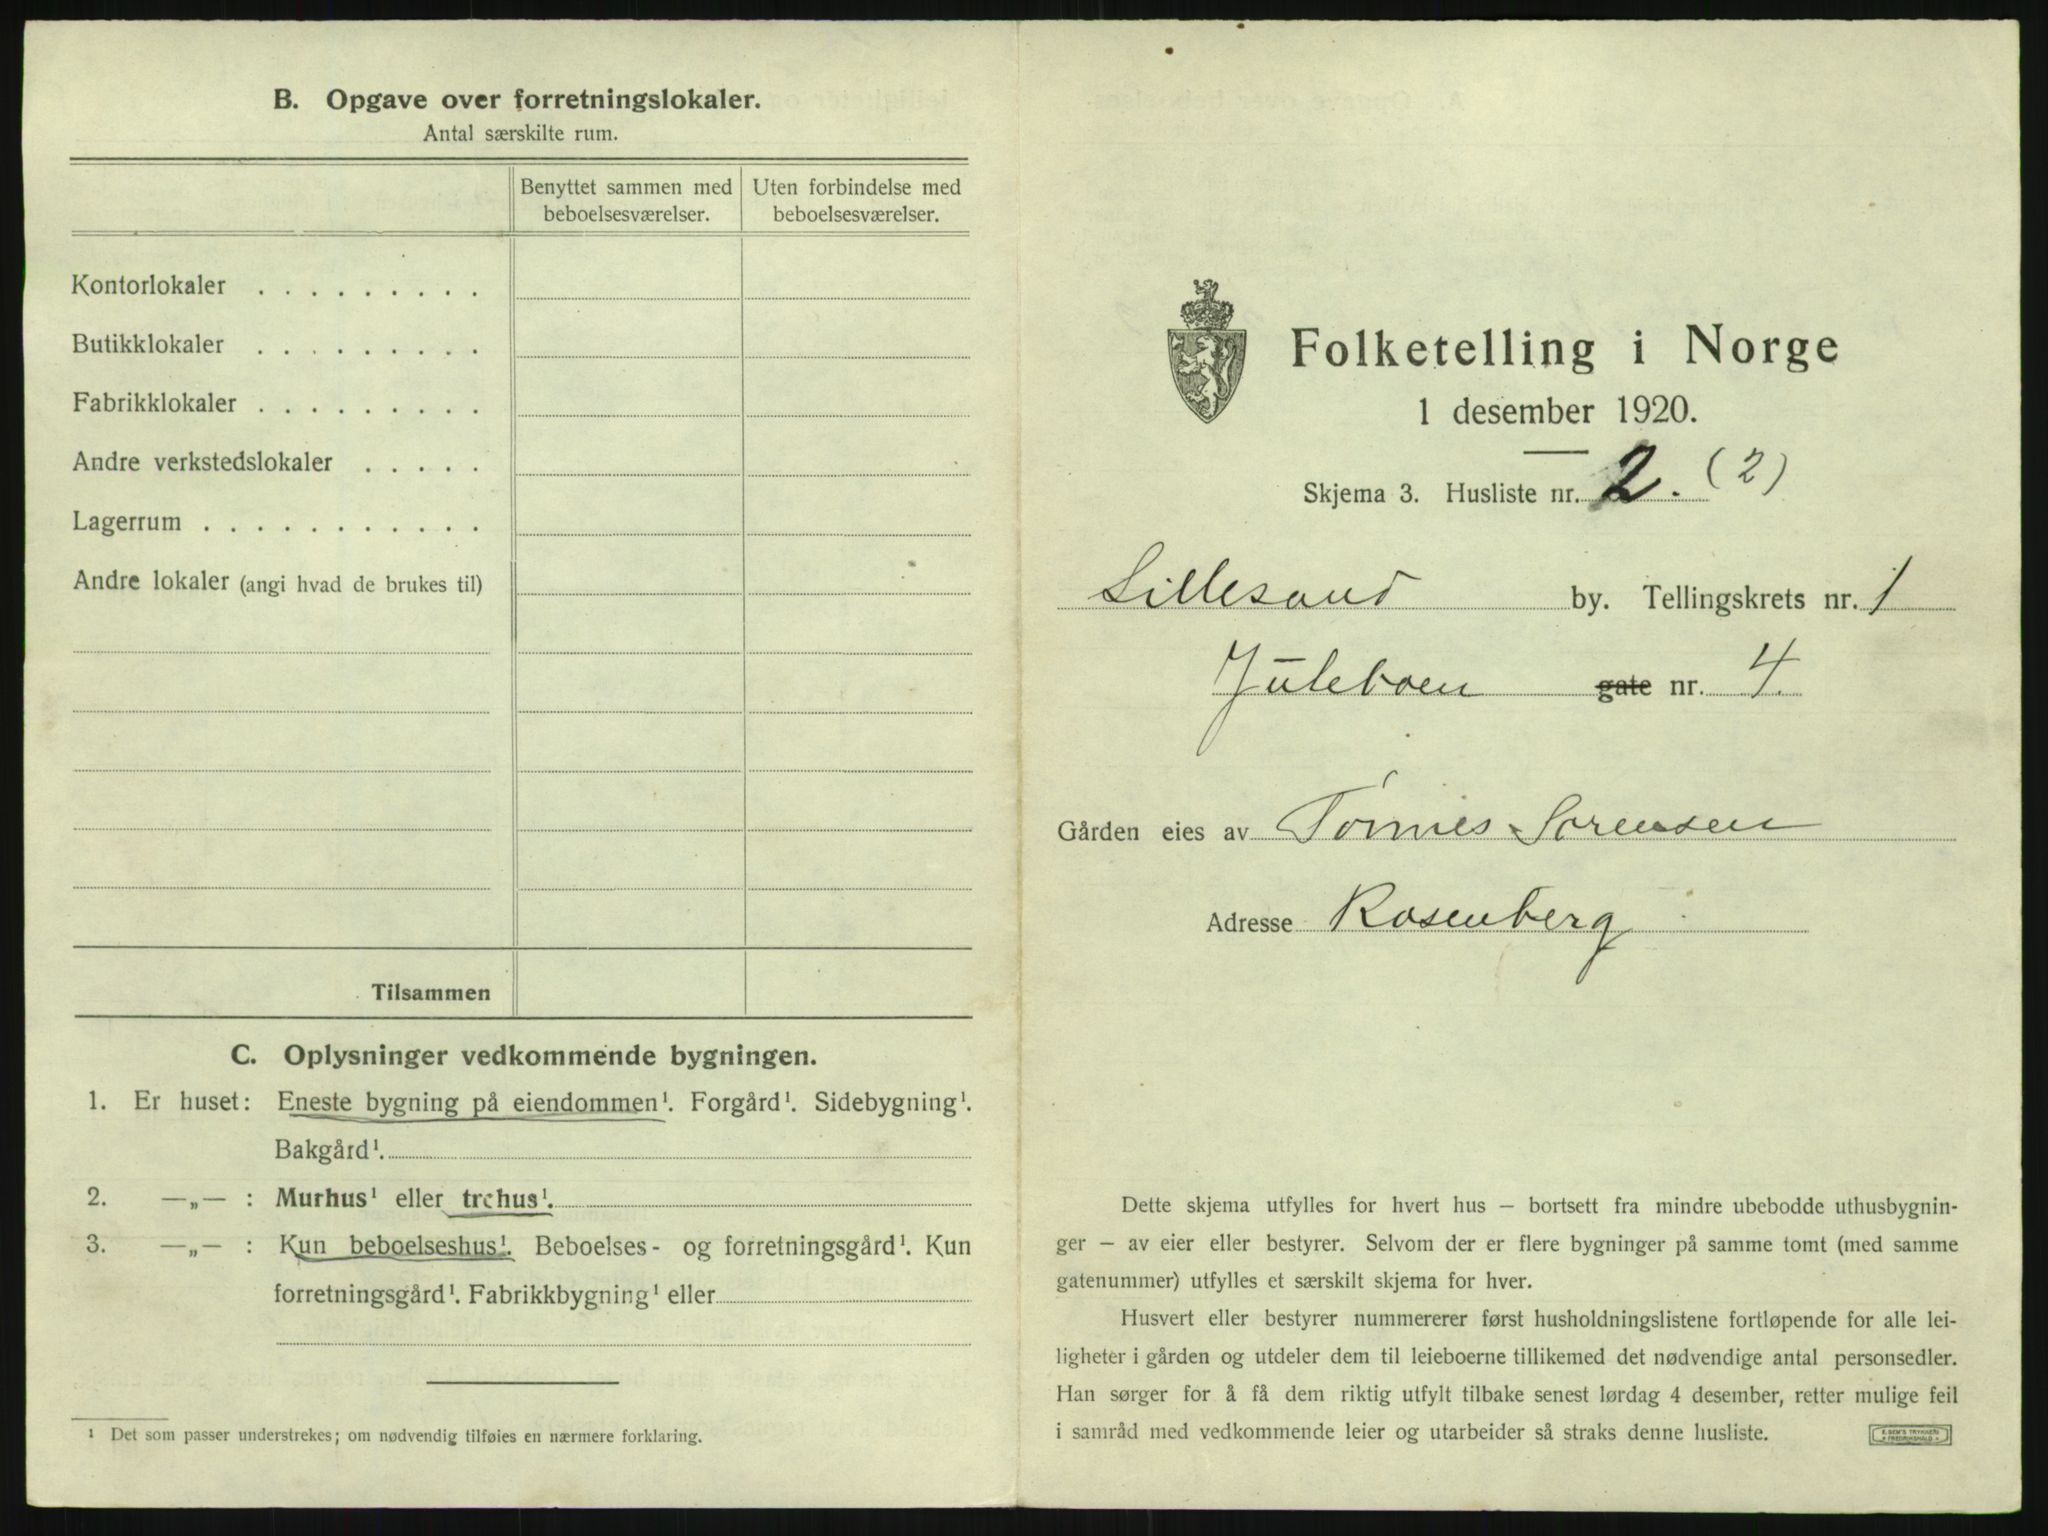 B. Opgave over forretningslokaler.
Antal særskilte rum.
Benyttet sammen med beboelsesværelser.
Uten forbindelse med beboelsesværelser.
Kontorlokaler . . . . . . . . .
Butikklokaler . . . . . . . . .
Fabrikklokaler . . . . . . . . .
Andre verkstedslokaler . . . . .
Lagerrum . . . . . . . . . . .
Andre lokaler (angi hvad de brukes til)
Tilsammen
C. Oplysninger vedkommende bygningen.
1. Er huset: Eneste bygning på eiendommen¹. Forgård¹. Sidebygning¹.
Bakgård¹.
2. —„— : Murhus¹ eller trehus¹.
3. —„— : Kun beboelseshus¹. Beboelses- og forretningsgård¹. Kun
forretningsgård¹. Fabrikkbygning¹ eller
¹ Det som passer understrekes; om nødvendig tilføies en nærmere forklaring.
Folketelling i Norge
1 desember 1920.
Skjema 3. Husliste nr. 2. (2)
Lillesand by. Tellingskrets nr. 1
Juleboen gate nr. 4.
Gården eies av Tønnes Sørensen
Adresse Rosenberg
Dette skjema utfylles for hvert hus – bortsett fra mindre ubebodde uthusbygnin-
ger – av eier eller bestyrer. Selvom der er flere bygninger på samme tomt (med samme
gatenummer) utfylles et særskilt skjema for hver.
Husvert eller bestyrer nummererer først husholdningslistene fortløpende for alle lei-
ligheter i gården og utdeler dem til leieboerne tillikemed det nødvendige antal personsedler.
Han sørger for å få dem riktig utfylt tilbake senest lørdag 4 desember, retter mulige feil
i samråd med vedkommende leier og utarbeider så straks denne husliste.
E. SEM'S TRYKKERI
FREDRIKSHALD